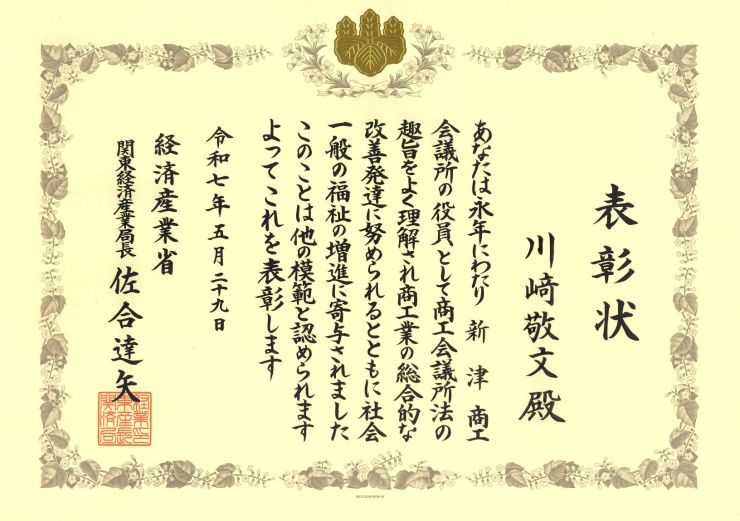 表彰状
川﨑敬文殿
あなたは永年にわたり 新津商工
会議所の役員として商工会議所法の
趣旨をよく理解され商工業の総合的な
改善発達に努められるとともに社会
一般の福祉の増進に寄与されました
このことは他の模範と認められます
よってこれを表彰します
令和七年五月二十九日
経済産業省
関東経済産業局長 佐合達矢